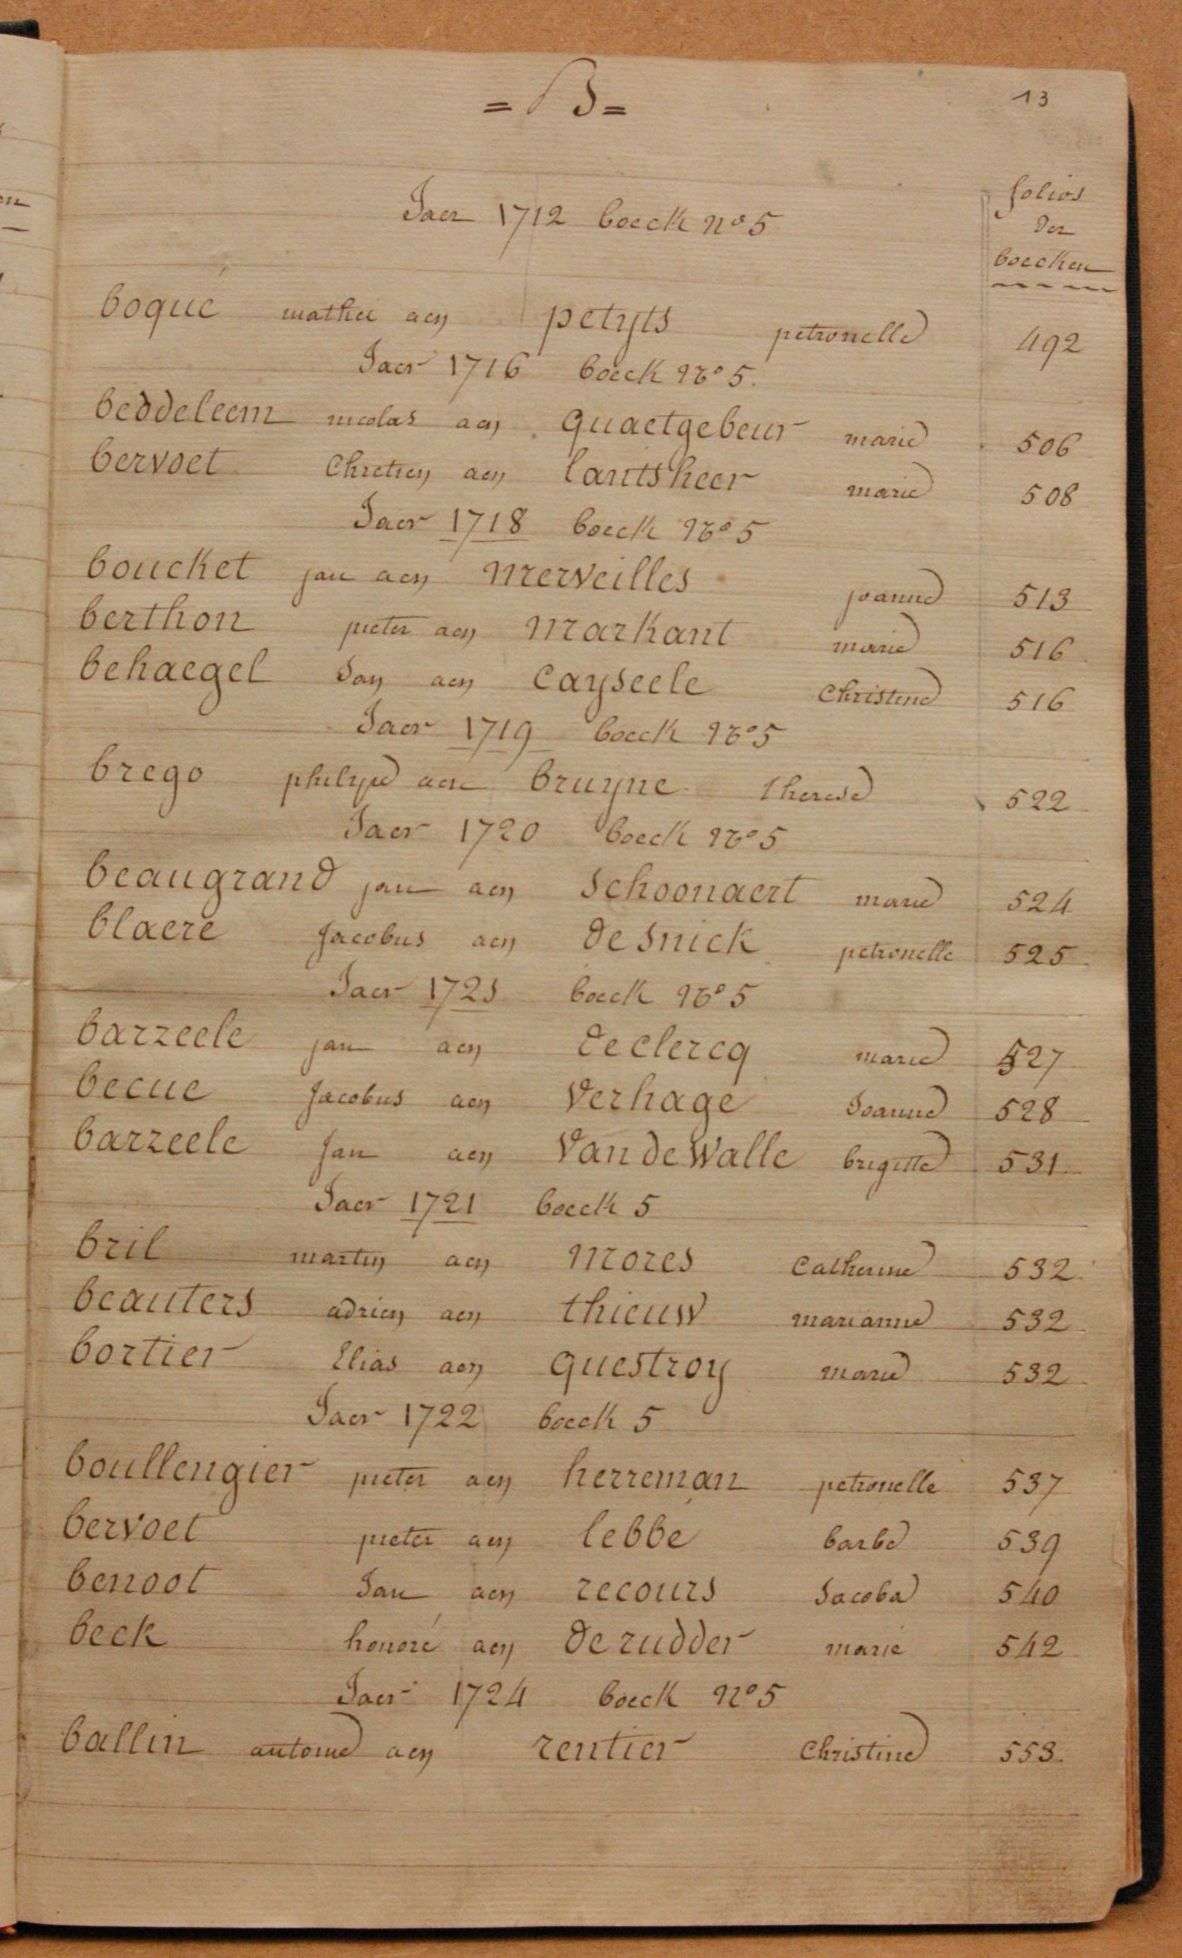 = B =
13
folios
der
boecken
Jaer 1712 boeck no 5
boqué mathu aen petyts petronelle 492
Jaer 1716 boeck No 5.
beddeleem nicolas aen quaetgebeur marie 506
bervoet Chretien aen lantsheer marie 508
Jaer 1718 boeck No 5
boucket jan aen merveilles joanne 513
berthon pieter aen markant marie 516
behaegel Jan aen Cayseele Christine 516
Jaer 1719 boeck No 5
brego philype aen bruyne therese 522
Jaer 1720 boeck No 5
beaugrand jan aen schoonaert marie 524
blaere Jacobus aen de snick petronelle 525
Jaer 1721 boeck No 5
barzeele jan aen de clercq marie 527
becue Jacobus aen verhage Joanne 528
barzeele Jan aen van de walle brigitte 531
Jaer 1721 boeck 5
bril martin aen mores Catherine 532
beauters adrien aen thieuw marianne 532
bortier Elias aen questroy marie 532
Jaer 1722 boeck 5
boullengier pieter aen herreman petronelle 537
bervoet pieter aen lebbe barbe 539
benoot Jan aen recours Jacoba 540
beck honoré aen de rudder marie 542
Jaer 1724 boeck No 5
ballin antoine aen rentier Christine 553